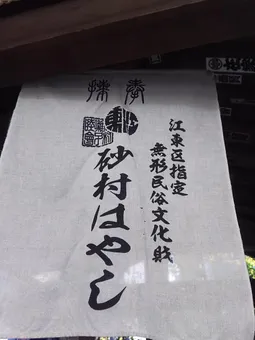 江東区指定
無形民俗文化財
砂村はやし